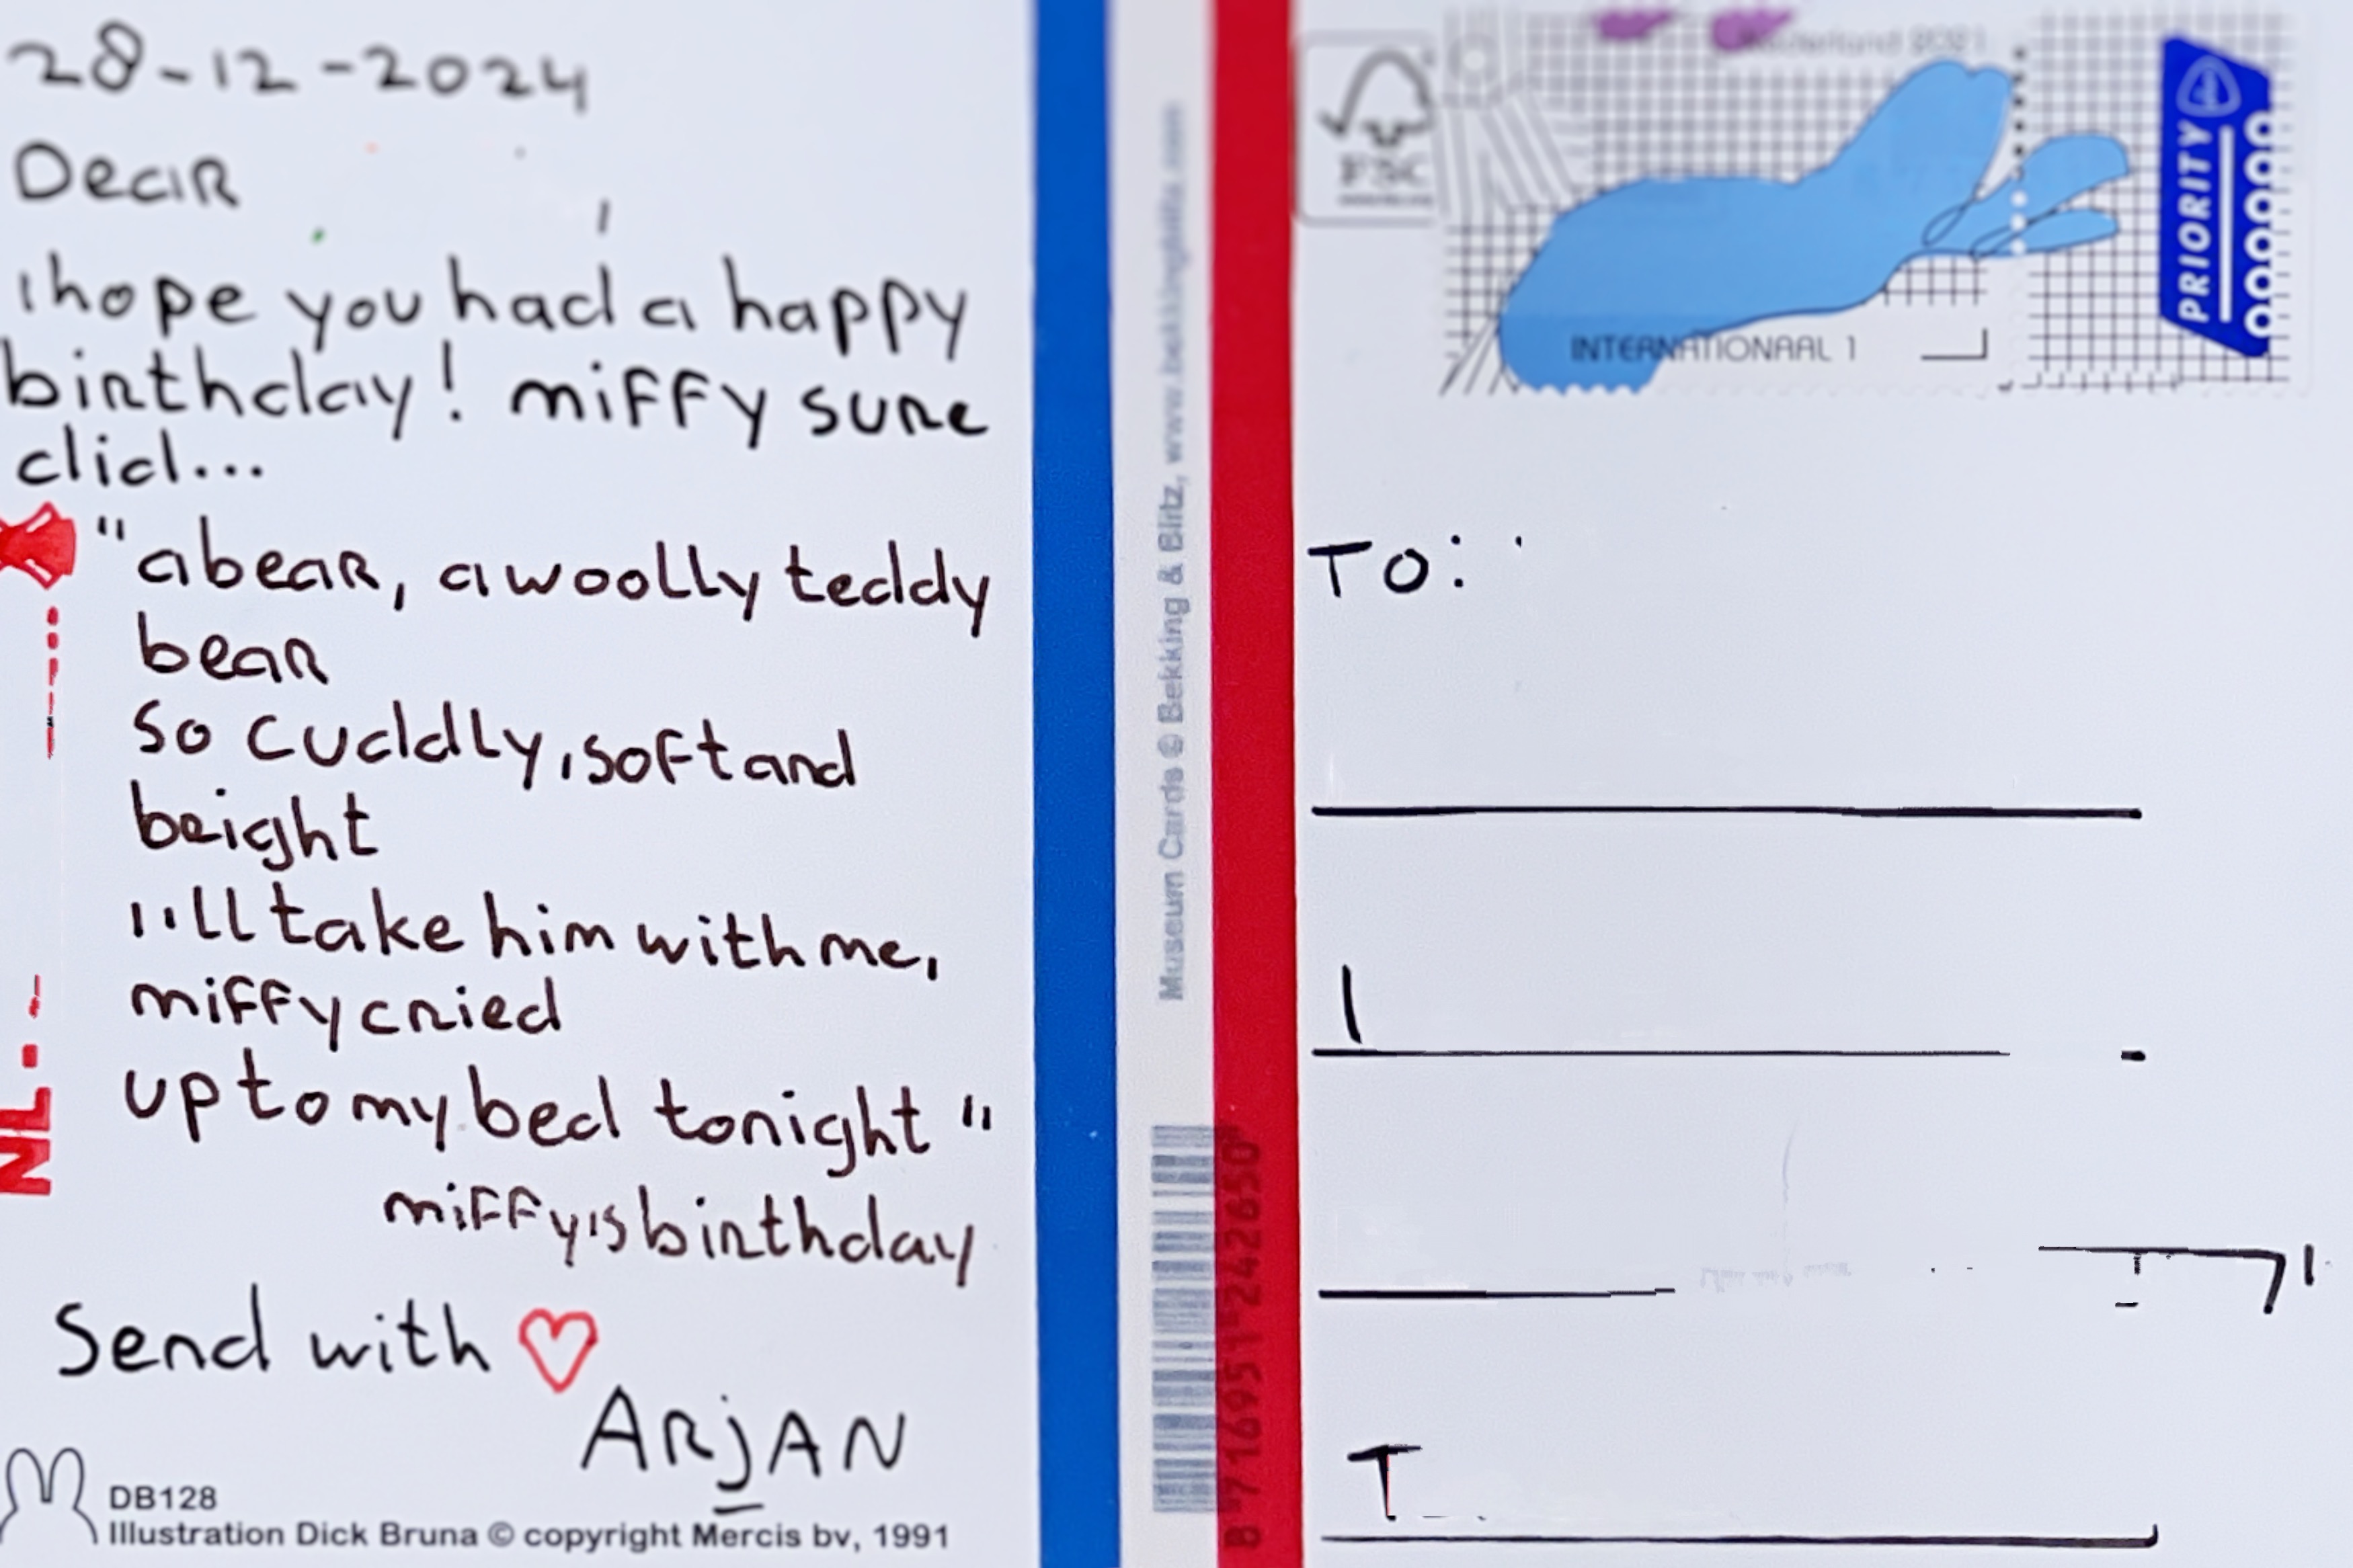 28-12-2024
Dear
I hope you had a happy
birthday! miffy sure
did...
"a bear, a woolly teddy
bear
so cuddly, soft and
beight
I'll take him with me,
miffy cried
up to my bed tonight"
miffy's birthday
Send with ♡
ARjAN
DB128
Illustration Dick Bruna © copyright Mercis bv, 1991
NL
Museum Cards © Bekking & Blitz, www.bekkingblitz.com
8 716951 242650
FSC
Nederland 2021
INTERNATIONAAL 1
PRIORITY
TO: